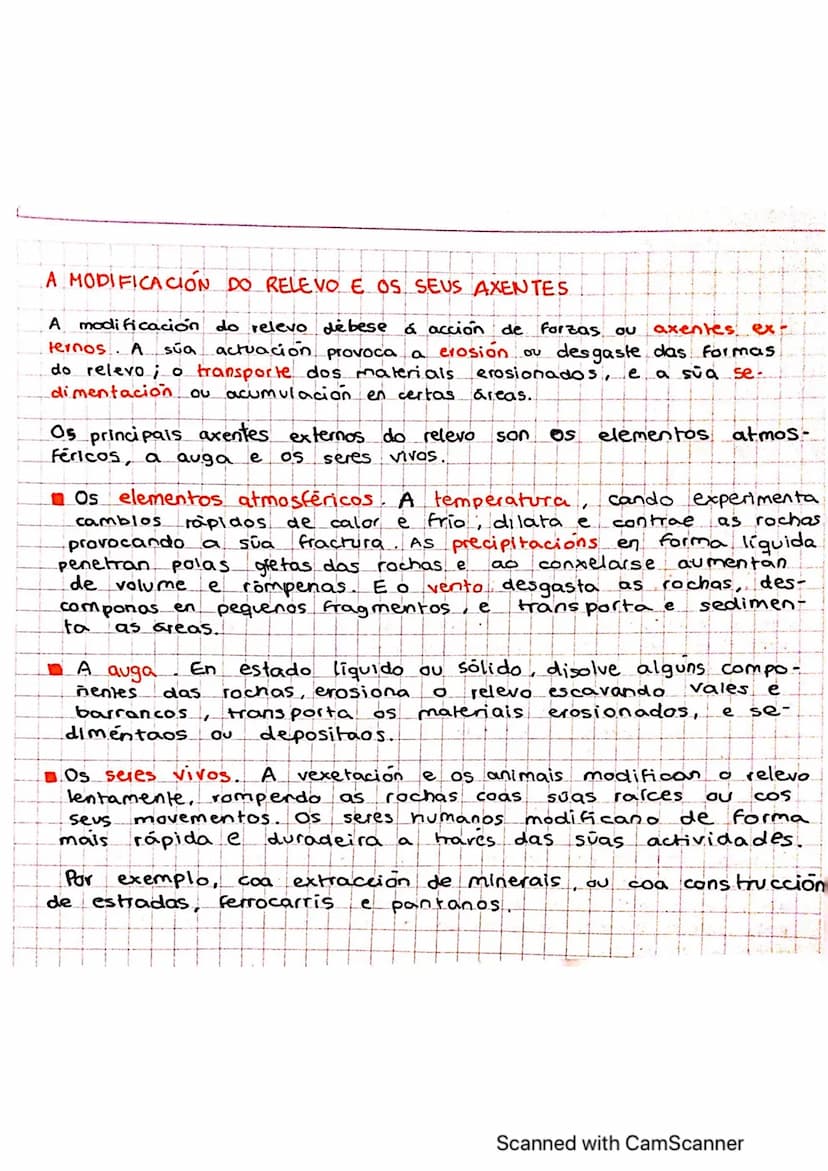 A MODIFICACIÓN DO RELEVO E OS SEUS AXENTES
A modificación do relevo débese á acción de forzas ou axentes ex-
ternos. A súa actuación provoca a erosión ou desgaste das formas
do relevo; o transporte dos materiais erosionados, e a súa se-
dimentación ou acumulación en certas áreas.
Os principais axentes externos do relevo son os elementos atmos-
féricos, a auga e os seres vivos.
■ Os elementos atmosféricos. A temperatura, cando experimenta
cambios rápidos de calor e frío, dilata e contrae as rochas
provocando a súa fractura. As precipitacións en forma líquida
penetran polas gretas das rochas e ao conxelarse aumentan
de volume e rómpenas. E o vento desgasta as rochas, des-
componas en pequenos fragmentos, e transporta e sedimen-
ta as áreas.
■ A auga. En estado líquido ou sólido, disolve algúns compo-
ñentes das rochas, erosiona o relevo escavando vales e
barrancos, transporta os materiais erosionados, e se-
diméntaos ou deposítaos.
■ Os seres vivos. A vexetación e os animais modifican o relevo
lentamente, rompendo as rochas coas súas raíces ou cos
seus movementos. Os seres humanos modificano de forma
máis rápida e duradeira a través das súas actividades.
Por exemplo, coa extracción de minerais, ou coa construcción
de estradas, ferrocarris e pantanos.
Scanned with CamScanner